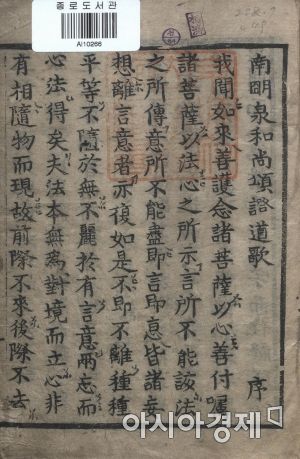 종로도서관
AI10266
南明泉和尚頌證道歌 序
我聞如來善護念諸菩薩以心善付囑
諸菩薩以法心之所示言所不能該法
之所傳意所不能盡即言即意皆諸妄
想離言意者亦復如是不即不離種種
平等不隨於無不麗於有言意兩忘而
心法得矣夫法本無為對境而立心非
有相隨物而現故前際不來後際不去
아시아경제